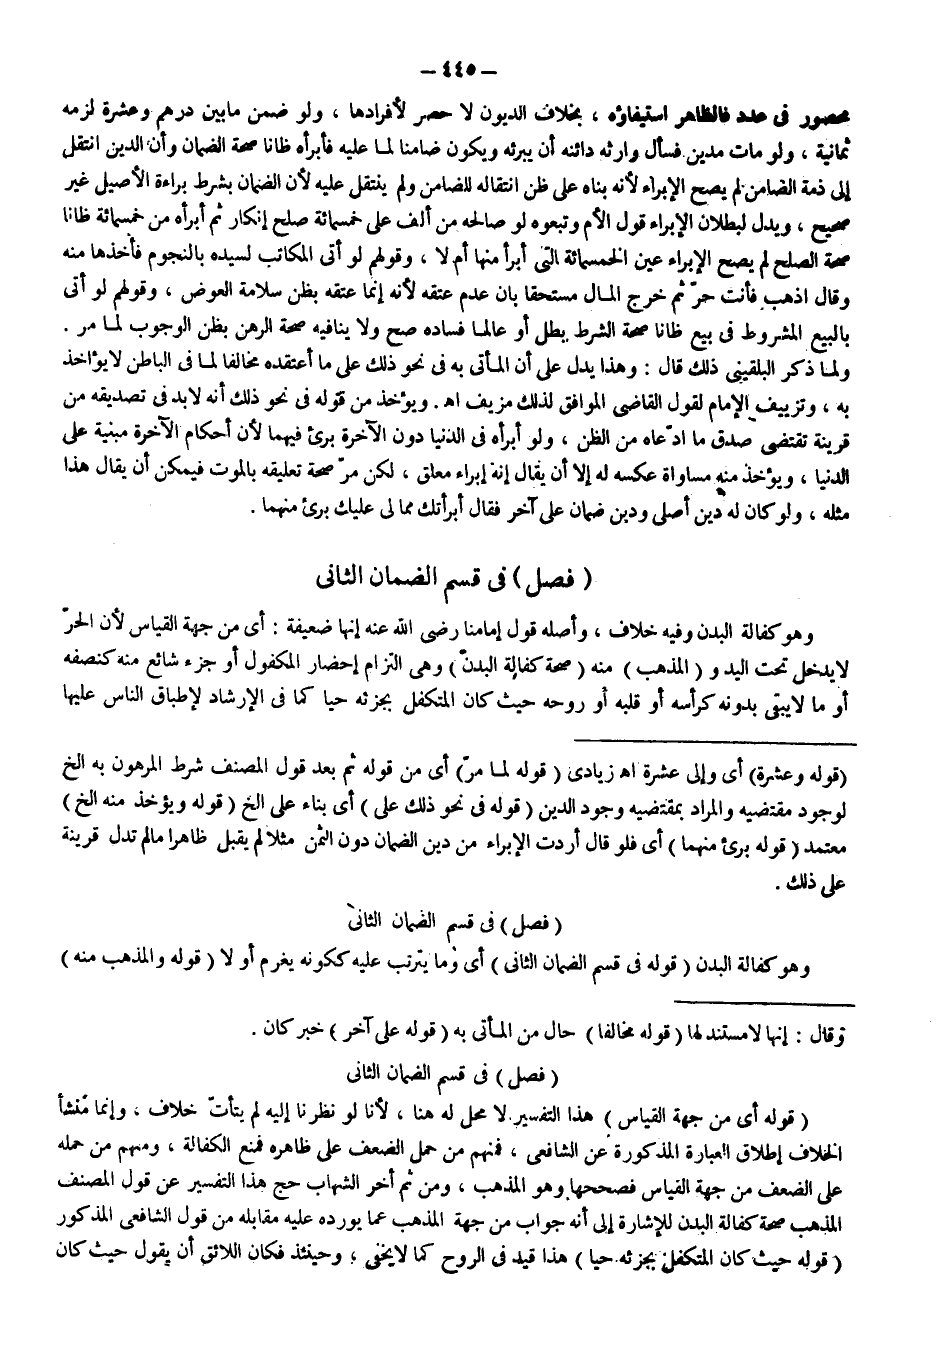 – ٤٤٥ –
محصور فى عدد فالظاهر استيفاؤه ، بخلاف الديون لا حصر لأفرادها ، ولو ضمن مابين درهم وعشرة لزمه
ثمانية ، ولو مات مدين فسأل وارثه دائنه أن يبرئه ويكون ضامنا لما عليه فأبرأه ظانا صحة الضمان وأن الدين انتقل
إلى ذمة الضامن لم يصح الإبراء لأنه بناه على ظن انتقاله للضامن ولم ينتقل عليه لأن الضمان بشرط براءة الأصيل غير
صحيح ، ويدل لبطلان الإبراء قول الأم وتبعوه لو صالحه من ألف على خمسمائة صلح إنكار ثم أبرأه من خمسمائة ظانا
صحة الصلح لم يصح الإبراء عين الخمسمائة التى أبرأ منها أم لا ، وقولهم لو أتى المكاتب لسيده بالنجوم فأخذها منه
وقال اذهب فأنت حرّ ثم خرج المال مستحقا بان عدم عتقه لأنه إنما عتقه بظن سلامة العوض ، وقولهم لو أتى
بالبيع المشروط فى بيع ظانا صحة الشرط بطل أو عالما فساده صح ولا ينافيه صحة الرهن بظن الوجوب لما مر .
ولما ذكر البلقينى ذلك قال : وهذا يدل على أن المأتى به فى نحو ذلك على ما أعتقده مخالفا لما فى الباطن لايؤاخذ
به ، وتزييف الإمام لقول القاضى الموافق لذلك مزيف اه . ويؤخذ من قوله فى نحو ذلك أنه لابد فى تصديقه من
قرينة تقتضى صدق ما ادعاه من الظن ، ولو أبرأه فى الدنيا دون الآخرة برئ فيهما لأن أحكام الآخرة مبنية على
الدنيا ، ويؤخذ منه مساواة عكسه له إلا أن يقال إنه إبراء معلق ، لكن مرّ صحة تعليقه بالموت فيمكن أن يقال هذا
مثله ، ولو كان له دين أصلى ودين ضمان على آخر فقال أبرأتك مما لى عليك برئ منهما .
( فصل ) فى قسم الضمان الثانى
وهو كفالة البدن وفيه خلاف ، وأصله قول إمامنا رضى الله عنه إنها ضعيفة : أى من جهة القياس لأن الحرّ
لايدخل تحت اليد و ( المذهب ) منه ( صحة كفالة البدن ) وهى التزام إحضار المكفول أو جزء شائع منه كنصفه
أو ما لايبقى بدونه كرأسه أو قلبه أو روحه حيث كان المتكفل بجزئه حيا كما فى الإرشاد لإطباق الناس عليها
(قوله وعشرة) أى وإلى عشرة اه زيادى ( قوله لما مرّ) أى من قوله ثم بعد قول المصنف شرط المرهون به الخ
لوجود مقتضيه والمراد بمقتضيه وجود الدين ( قوله فى نحو ذلك على ) أى بناء على الخ ( قوله ويؤخذ منه الخ )
معتمد ( قوله برئ منهما ) أى فلو قال أردت الإبراء من دين الضمان دون الثمن مثلا لم يقبل ظاهرا مالم تدل قرينة
على ذلك .
( فصل ) فى قسم الضمان الثانى
وهو كفالة البدن ( قوله فى قسم الضمان الثانى ) أى وما يترتب عليه ككونه يغرم أو لا ( قوله والمذهب منه )
وقال : إنها لا مستند لها ( قوله مخالفا ) حال من المأتى به ( قوله على آخر ) خبر كان .
( فصل ) فى قسم الضمان الثانى
( قوله أى من جهة القياس ) هذا التفسير لا محل له هنا ، لأنا لو نظرنا إليه لم يتأت خلاف ، وإنما منشأ
الخلاف إطلاق العبارة المذكورة عن الشافعى ، فمنهم من حمل الضعف على ظاهره فمنع الكفالة ، ومنهم من حمله
على الضعف من جهة القياس فصححها وهو المذهب ، ومن ثم أخر الشهاب حج هذا التفسير عن قول المصنف
المذهب صحة كفالة البدن للإشارة إلى أنه جواب من جهة المذهب عما يورده عليه مقابله من قول الشافعى المذكور
( قوله حيث كان المتكفل بجزئه حيا ) هذا قيد فى الروح كما لايخفى ، وحينئذ فكان اللائق أن يقول حيث كان